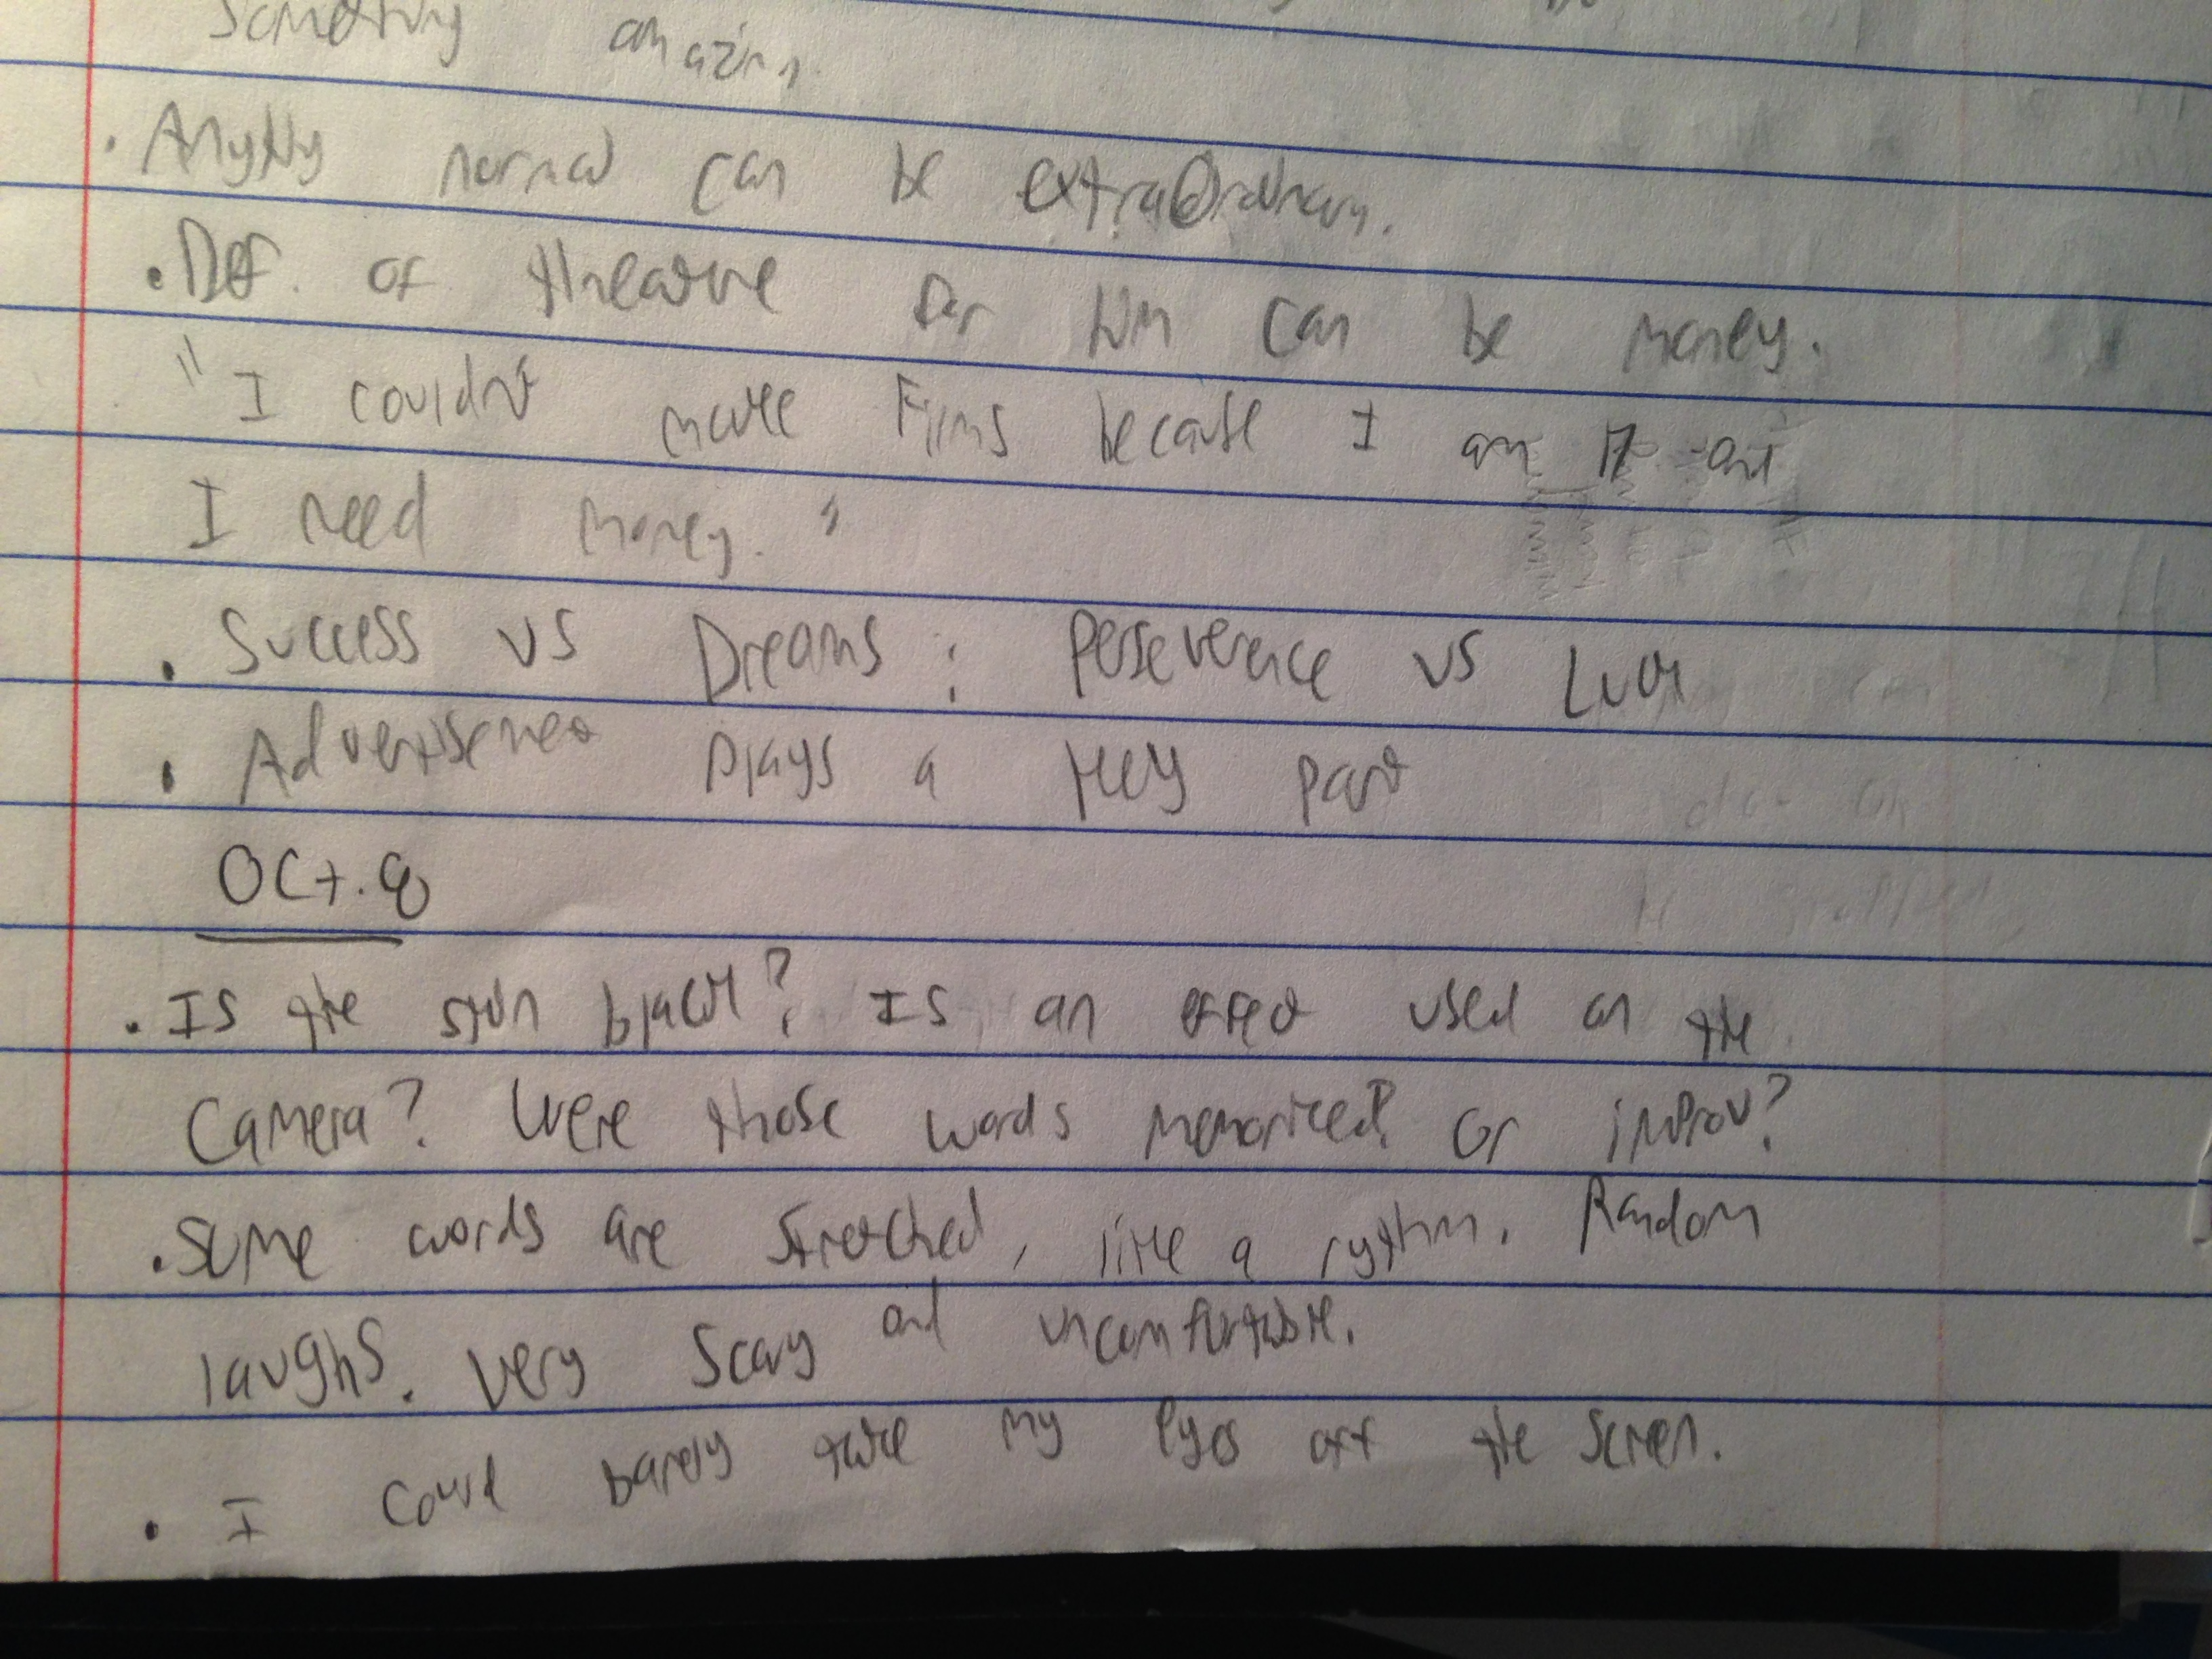 Something amazing.
• Anything normal can be extraOrdinary.
• Def. of theatre for him can be money.
"I couldn't make Films because I am 17 and
I need money."
• Success vs Dreams : Perseverence vs Luck
• Advertisement plays a key part
Oct. 8
• Is the skin black? Is an effect used on the
Camera? Were those words memorized? Or improv?
• Some words are stretched, like a rythm. Random
laughs. Very Scary and uncomfortable.
• I could barely take my eyes off the screen.